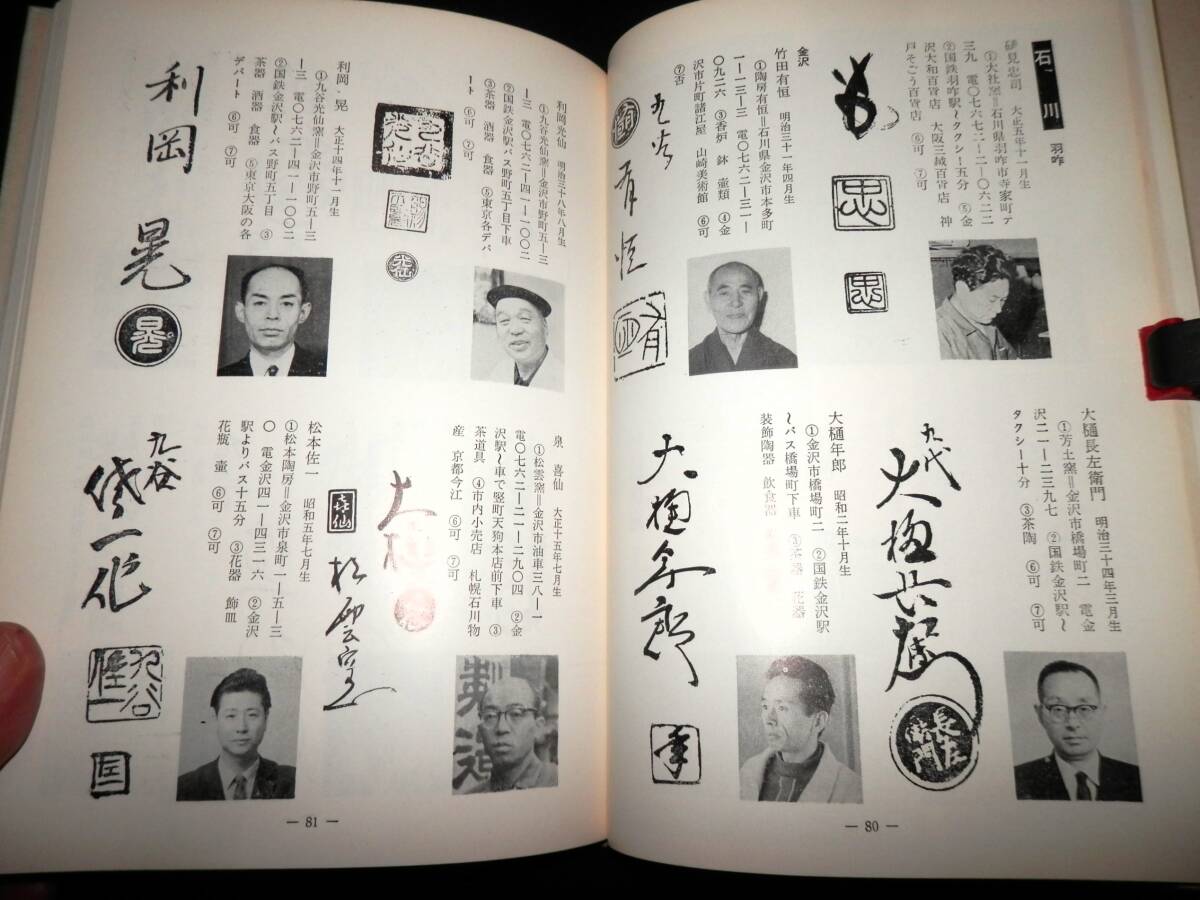 石川 羽咋
砂見忠司 大正五年十一月生
①大社窯＝石川県羽咋市寺家町テ
三九 電〇七六七二―二―〇六二二
②国鉄羽咋駅〜タクシー五分 ⑤金
沢大和百貨店 大阪三越百貨店 神
戸そごう百貨店 ⑥可 ⑦可
忠
忠
金沢
竹田有恒 明治三十一年四月生
①陶房有恒＝石川県金沢市本多町
一―一三―三 電〇七六二―三一―
〇九二六 ③香炉 鉢 壷類 ④金
沢市片町諸江屋 山崎美術館 ⑥可
⑦否
九谷 有恒
大樋長左衛門 明治三十四年三月生
①芳土窯＝金沢市橋場町二 電金
沢二一―二三九七 ②国鉄金沢駅〜
タクシー十分 ③茶陶 ⑥可 ⑦可
九代
大樋年郎 昭和二年十月生
①金沢市橋場町二 ②国鉄金沢駅
〜バス橋場町下車 ③茶器 花器
装飾陶器 飲食器
大樋年郎
年
― 80 ―
利岡光仙 明治三十八年八月生
①九谷光仙窯＝金沢市野町五―三
―三 電〇七六二―四一―一〇〇二
②国鉄金沢駅〜バス野町五丁目下車
③茶器 酒器 食器 ⑤東京各デパ
ート ⑥可 ⑦可
九谷光仙
光仙
利岡 晃 大正十四年十一月生
①九谷光仙窯＝金沢市野町五―三
―三 電〇七六二―四一―一〇〇二
②国鉄金沢駅〜バス野町五丁目 ③
茶器 酒器 食器 ⑤東京大阪の各
デパート ⑥可 ⑦可
利岡晃
晃
泉 喜仙 大正十五年七月生
①松雲窯＝金沢市油車三八―一
電〇七六二―二一―二九〇四 ②金
沢駅〜車で竪町天狗本店前下車 ③
茶道具 ④市内小売店 札幌石川物
産 京都今江 ⑥可 ⑦可
喜仙
松雲窯
松本佐一 昭和五年七月生
①松本陶房＝金沢市泉町一―五―三
〇 電金沢四一―四三一六 ②金沢
駅よりバス十五分 ③花器 飾皿
花瓶 壷 ⑥可 ⑦可
九谷
佐一作
九谷佐一
― 81 ―